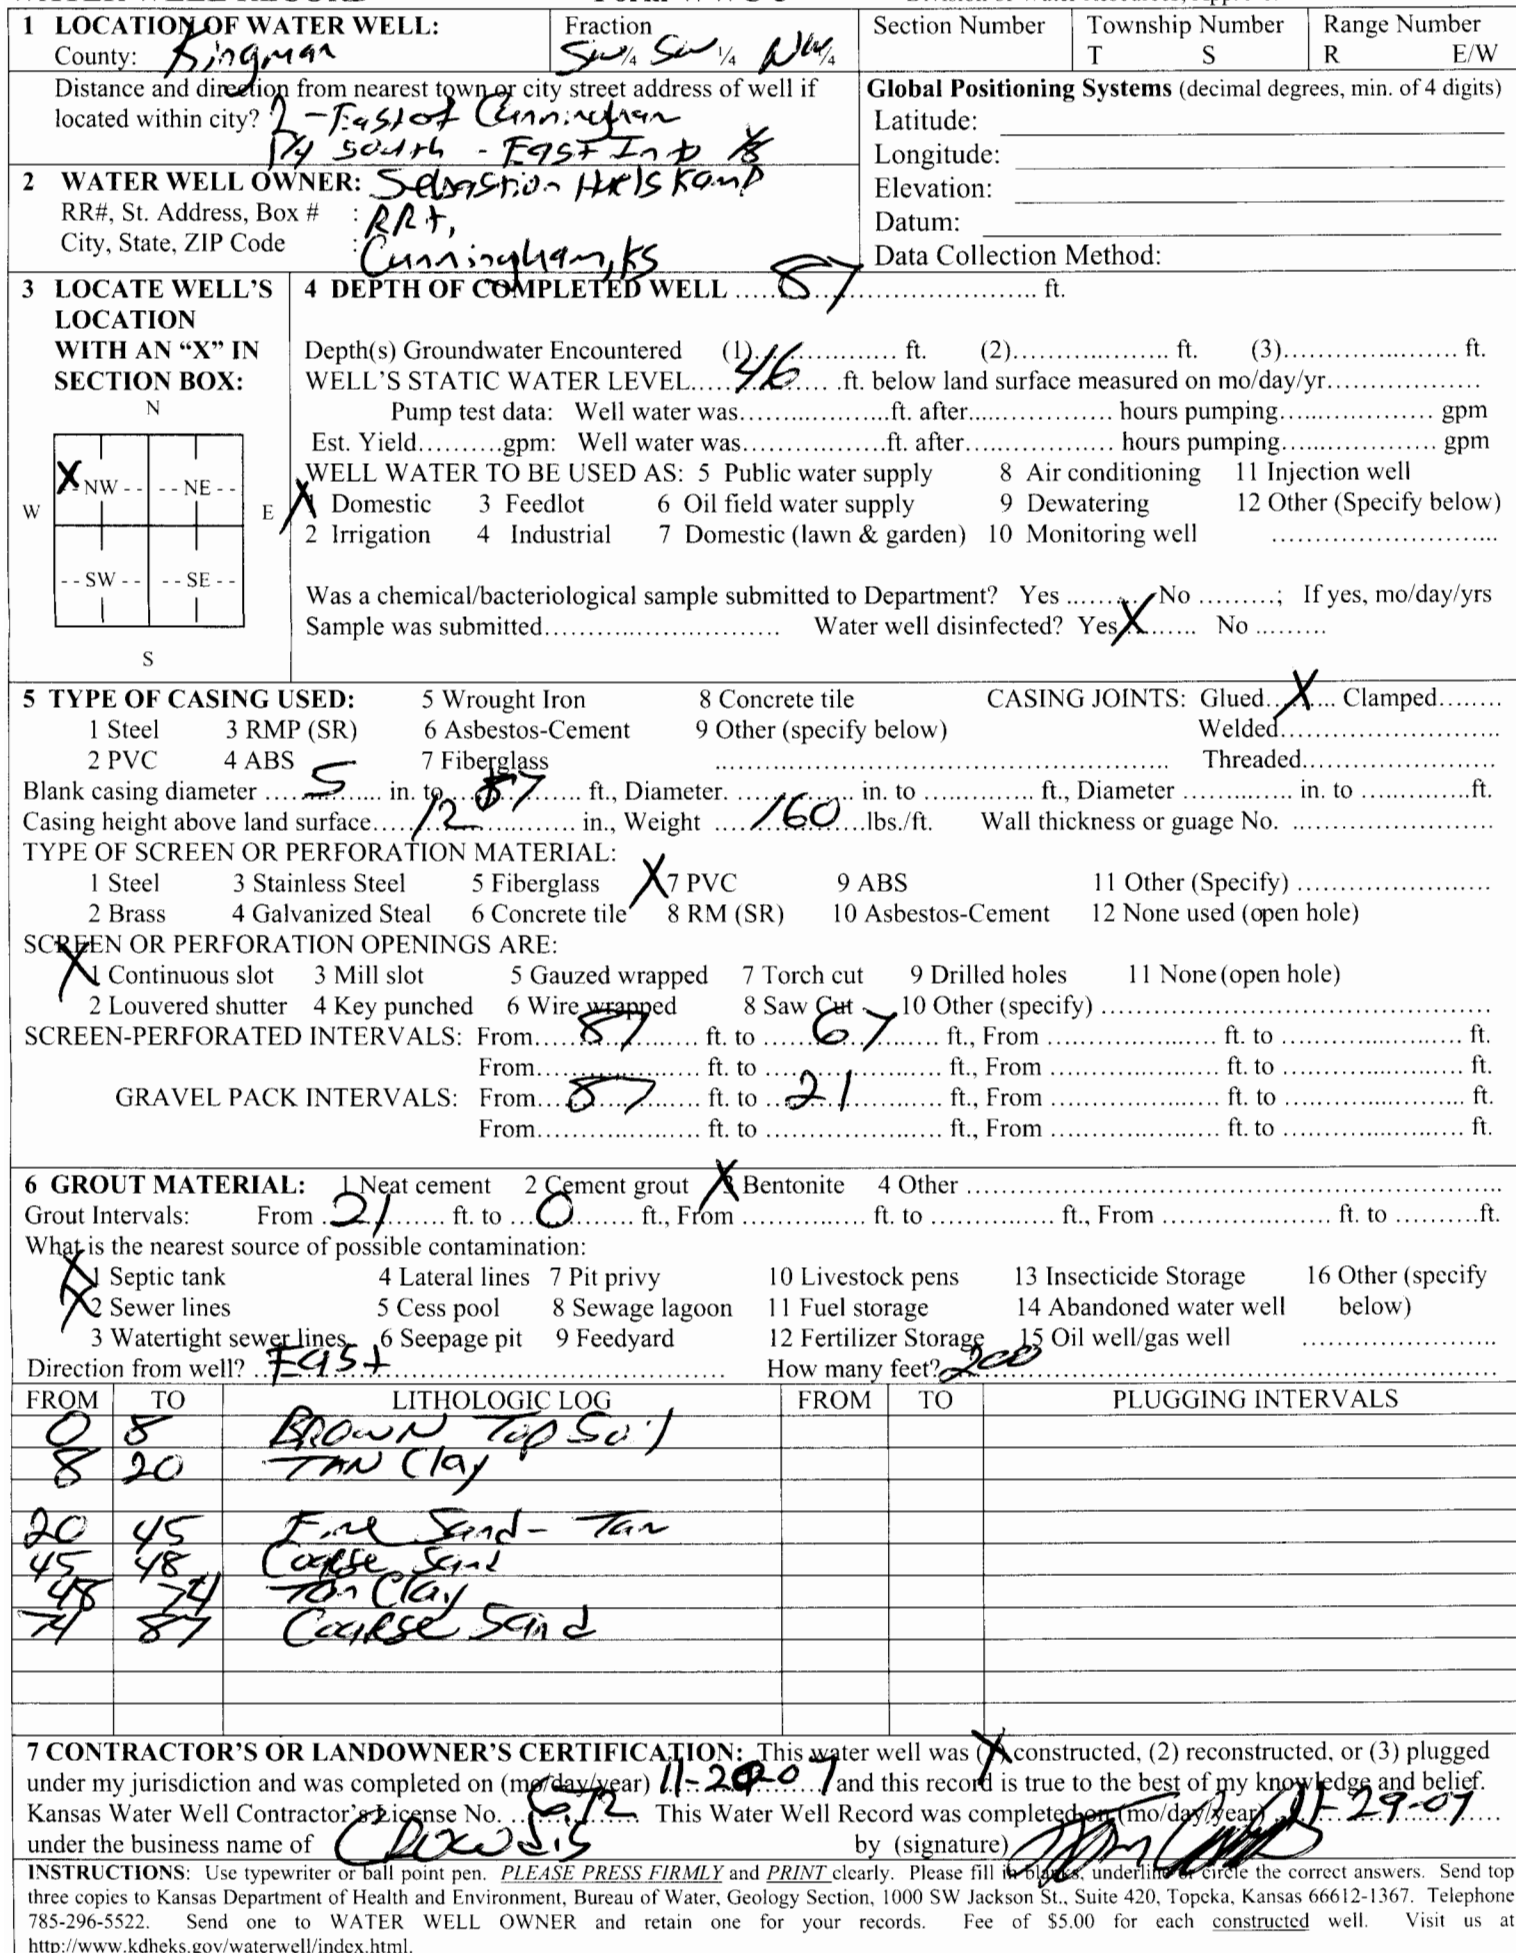 1 LOCATION OF WATER WELL: Fraction Section Number Township Number Range Number
County: Kingman SW ¼ SW ¼ NW ¼ T S R E/W
Distance and direction from nearest town or city street address of well if Global Positioning Systems (decimal degrees, min. of 4 digits)
located within city? 2 - East of Cunningham Latitude:
1/4 South - East Into Longitude:
2 WATER WELL OWNER: Sebastion Huelskamp Elevation:
RR#, St. Address, Box # : RR Datum:
City, State, ZIP Code : Cunningham, KS Data Collection Method:
3 LOCATE WELL'S LOCATION WITH AN “X” IN SECTION BOX:
N
X NW NE
W E
SW SE
S
4 DEPTH OF COMPLETED WELL ..... 87 ..... ft.
Depth(s) Groundwater Encountered (1)........ ft. (2)........ ft. (3)........ ft.
WELL'S STATIC WATER LEVEL..... 46 .....ft. below land surface measured on mo/day/yr........
Pump test data: Well water was........ft. after........ hours pumping........ gpm
Est. Yield........gpm: Well water was........ft. after........ hours pumping........ gpm
WELL WATER TO BE USED AS: 5 Public water supply 8 Air conditioning 11 Injection well
X 1 Domestic 3 Feedlot 6 Oil field water supply 9 Dewatering 12 Other (Specify below)
2 Irrigation 4 Industrial 7 Domestic (lawn & garden) 10 Monitoring well ........
Was a chemical/bacteriological sample submitted to Department? Yes ........ No ........; If yes, mo/day/yrs
Sample was submitted........ Water well disinfected? Yes X ...... No ........
5 TYPE OF CASING USED: 5 Wrought Iron 8 Concrete tile CASING JOINTS: Glued.. X .... Clamped........
1 Steel 3 RMP (SR) 6 Asbestos-Cement 9 Other (specify below) Welded........
2 PVC 4 ABS 7 Fiberglass ........ Threaded........
Blank casing diameter ..... 5 ..... in. to ..... 87 ..... ft., Diameter. ........ in. to ........ ft., Diameter ........ in. to ........ft.
Casing height above land surface..... 12 ..... in., Weight ..... 160 ..lbs./ft. Wall thickness or guage No. ........
TYPE OF SCREEN OR PERFORATION MATERIAL:
1 Steel 3 Stainless Steel 5 Fiberglass X 7 PVC 9 ABS 11 Other (Specify) ........
2 Brass 4 Galvanized Steal 6 Concrete tile 8 RM (SR) 10 Asbestos-Cement 12 None used (open hole)
SCREEN OR PERFORATION OPENINGS ARE:
X 1 Continuous slot 3 Mill slot 5 Gauzed wrapped 7 Torch cut 9 Drilled holes 11 None (open hole)
2 Louvered shutter 4 Key punched 6 Wire wrapped 8 Saw Cut 10 Other (specify) ........
SCREEN-PERFORATED INTERVALS: From..... 87 ..... ft. to ..... 67 ..... ft., From ........ ft. to ........ ft.
From........ ft. to ........ ft., From ........ ft. to ........ ft.
GRAVEL PACK INTERVALS: From.... 87 ..... ft. to ... 21 ..... ft., From ........ ft. to ........ ft.
From........ ft. to ........ ft., From ........ ft. to ........ ft.
6 GROUT MATERIAL: 1 Neat cement 2 Cement grout X 3 Bentonite 4 Other ........
Grout Intervals: From .. 21 ..... ft. to ... 0 ..... ft., From ........ ft. to ........ ft., From ........ ft. to ........ft.
What is the nearest source of possible contamination:
X 1 Septic tank 4 Lateral lines 7 Pit privy 10 Livestock pens 13 Insecticide Storage 16 Other (specify
X 2 Sewer lines 5 Cess pool 8 Sewage lagoon 11 Fuel storage 14 Abandoned water well below)
3 Watertight sewer lines 6 Seepage pit 9 Feedyard 12 Fertilizer Storage 15 Oil well/gas well ........
Direction from well? .. East ..... How many feet? 200 ........
FROM TO LITHOLOGIC LOG FROM TO PLUGGING INTERVALS
0 8 BROWN Top Soil
8 20 TAN Clay
20 45 Fine Sand - Tan
45 48 Coarse Sand
48 74 Tan Clay
74 87 Coarse Sand
7 CONTRACTOR'S OR LANDOWNER'S CERTIFICATION: This water well was (X constructed, (2) reconstructed, or (3) plugged
under my jurisdiction and was completed on (mo/day/year) 11-20-07 and this record is true to the best of my knowledge and belief.
Kansas Water Well Contractor's License No. ........ This Water Well Record was completed on (mo/day/year) 11-29-07
under the business name of by (signature)
INSTRUCTIONS: Use typewriter or ball point pen. PLEASE PRESS FIRMLY and PRINT clearly. Please fill in blanks, underline or circle the correct answers. Send top
three copies to Kansas Department of Health and Environment, Bureau of Water, Geology Section, 1000 SW Jackson St., Suite 420, Topeka, Kansas 66612-1367. Telephone
785-296-5522. Send one to WATER WELL OWNER and retain one for your records. Fee of $5.00 for each constructed well. Visit us at
http://www.kdheks.gov/waterwell/index.html.